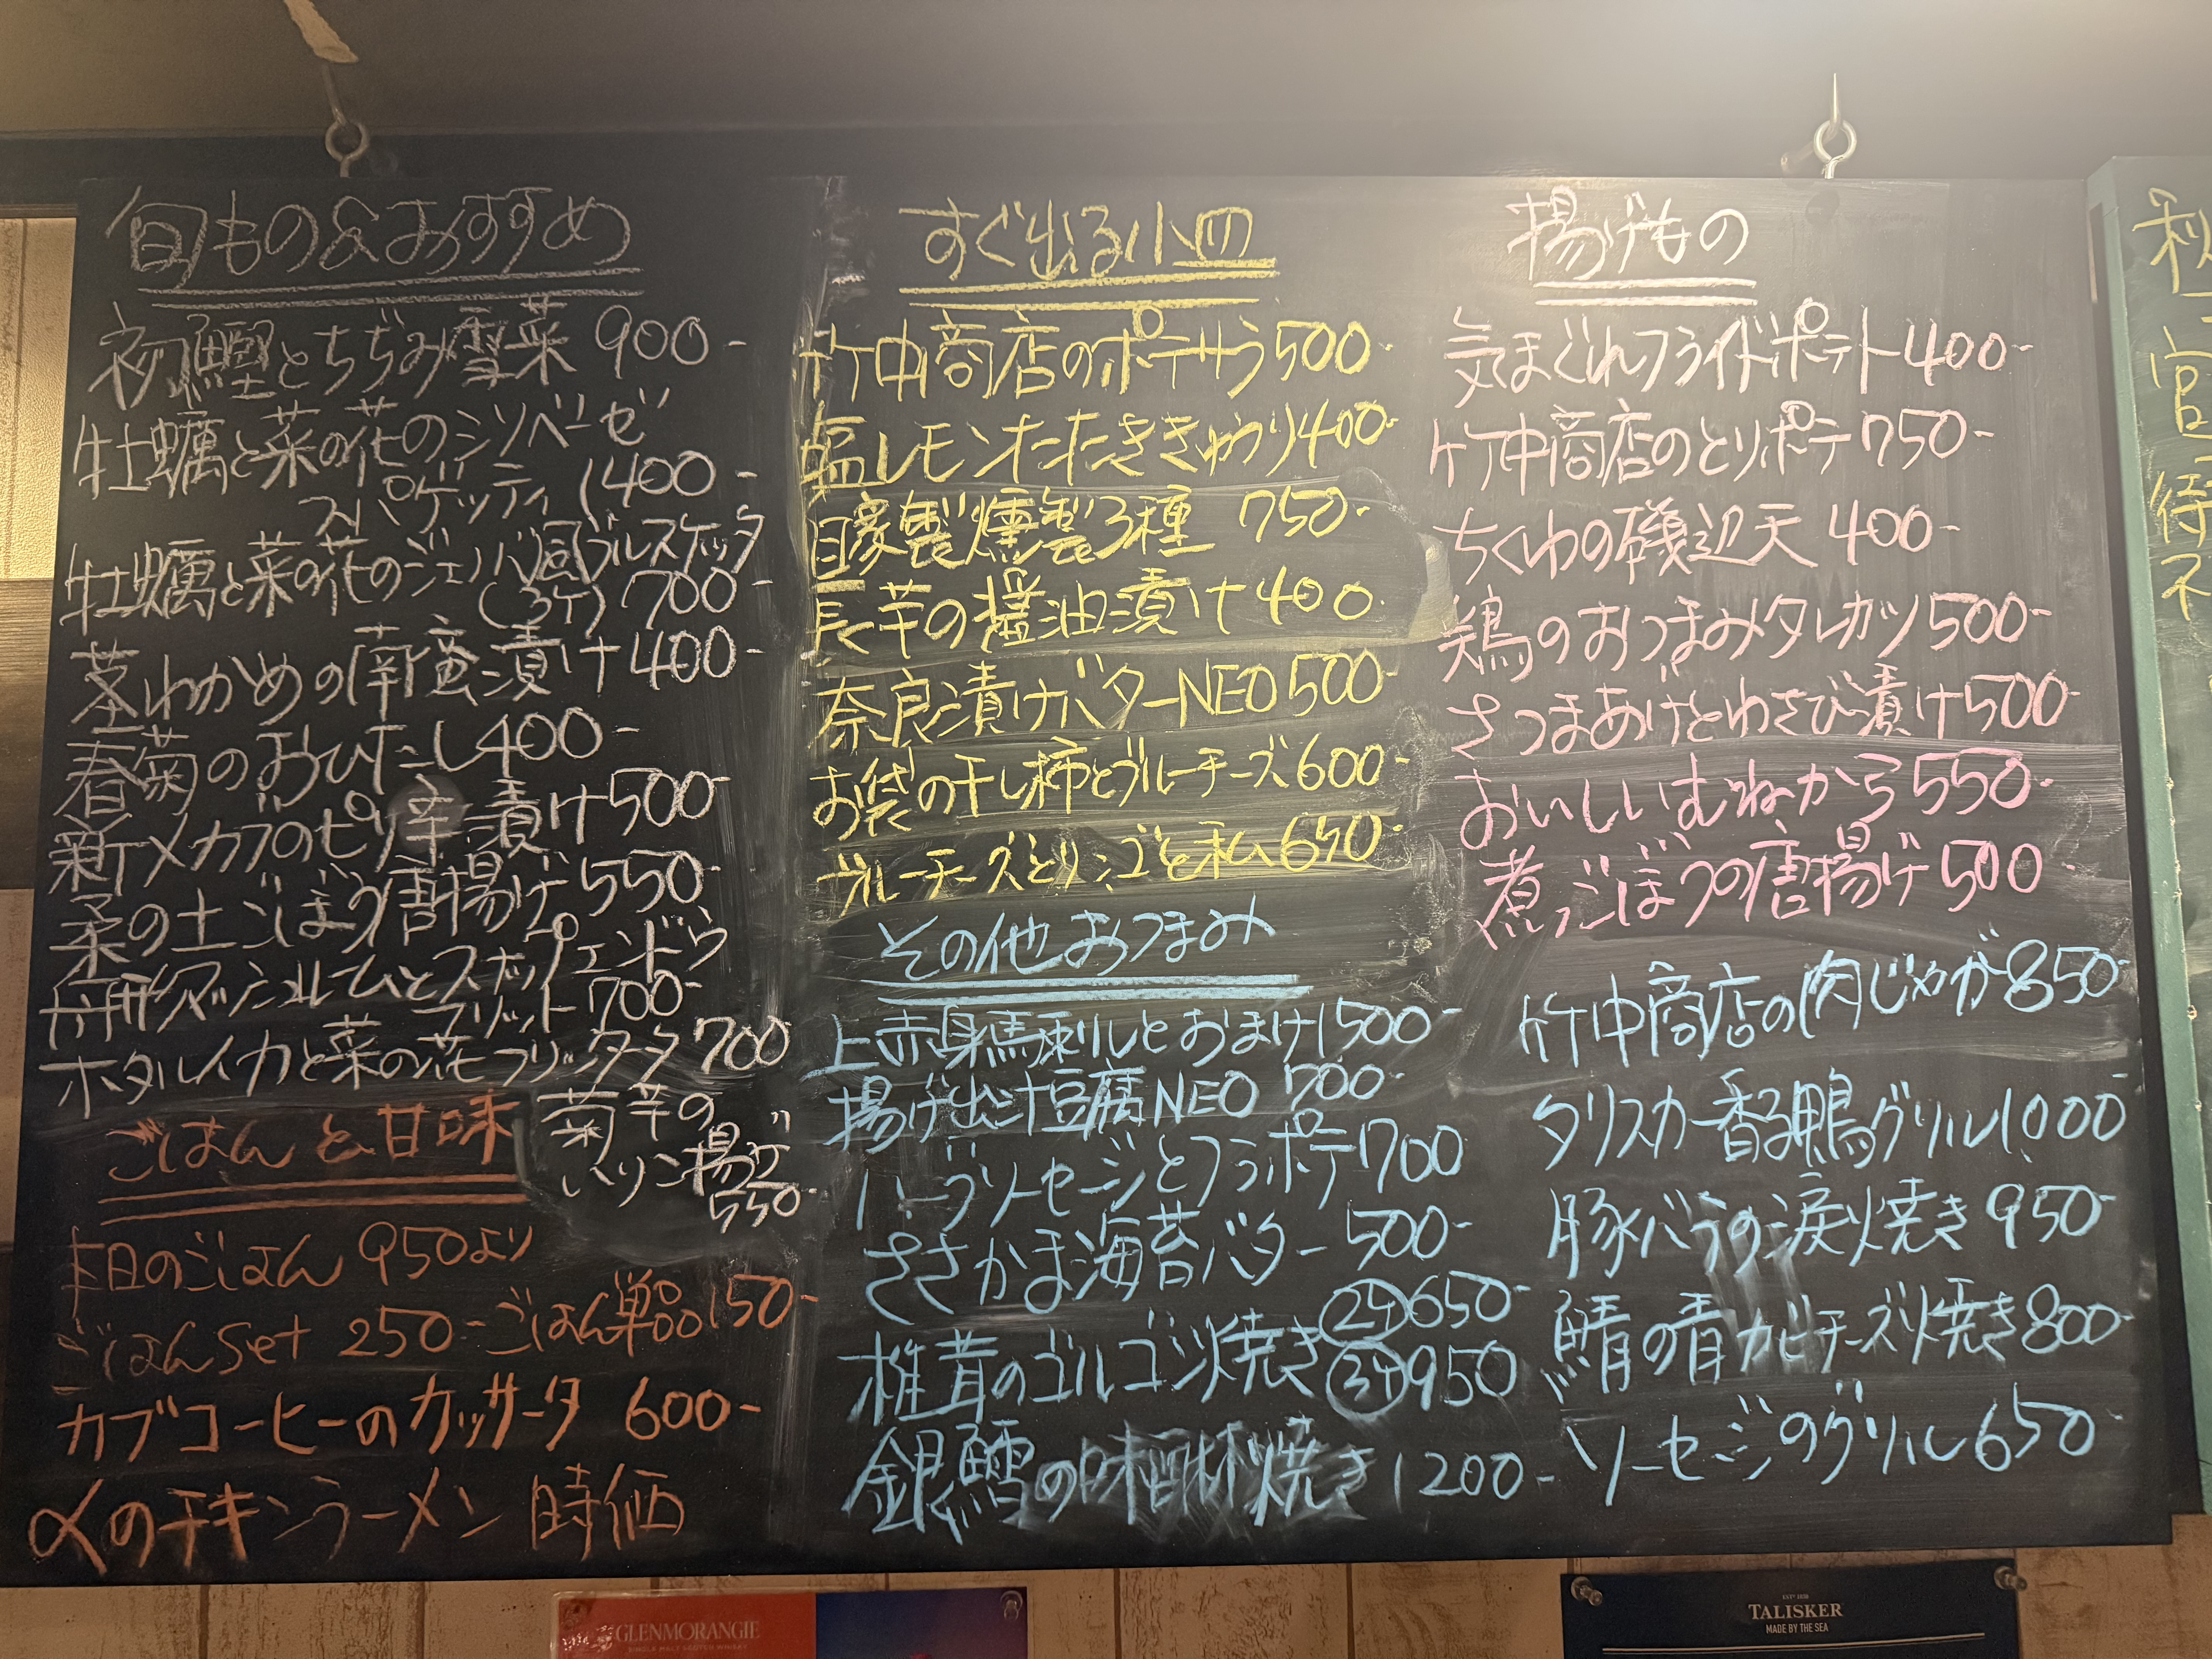 旬もの&おすすめ
初鰹とちぢみ雪菜 900-
牡蠣と菜の花のジソベーゼ
スパゲッティ 1400-
牡蠣と菜の花のジェノバ風ブルスケッタ
(3ケ) 700-
茎わかめの南蛮漬け 400-
春菊のおひたし 400-
新メカブのピリ辛漬け 500-
柔の土ごぼう唐揚げ 550-
舟形マッシュルームとスナップエンドウ
フリット 700-
ホタルイカと菜の花フリッター 700
菊芋の
ハリハリ揚げ
550-
ごはんと甘味
本日のごはん 950より
ごはんset 250- ごはん単品 150-
カブコーヒーのカッサータ 600-
〆のチキンラーメン 時価
すぐ出る小皿
竹中商店のポテサラ 500-
塩レモンたたききゅうり 400-
自家製燻製3種 750-
長芋の醤油漬け 400.
奈良漬けバターNEO 500-
お袋の干し柿とブルーチーズ 600-
ブルーチーズとリンゴと私 650-
その他おつまみ
上赤身馬刺しとおまけ 1500-
揚げ出汁豆腐NEO 700-
ハーブソーセージとフラポテ 700
ささかま海苔バター 500-
椎茸のゴルゴンゾ焼き ②ケ 650-
③ケ 950
銀鱈の味醂焼き 1200-
揚げもの
気まぐれフライドポテト 400-
竹中商店のとりポテ 750-
ちくわの磯辺天 400-
鶏のおつまみタレカツ 500-
さつまあげとわさび漬け 500-
おいしいむねから 550-
煮ごぼうの唐揚げ 500
竹中商店の肉じゃが 850-
タリスカー香る鴨グリル 1000
豚バラの涙焼き 950-
鯖の青カビチーズ焼き 800-
ソーセージのグリル 650-
秋
官
待
ネ
GLENMORANGIE
SINGLE MALT SCOTCH WHISKY
TALISKER
MADE BY THE SEA